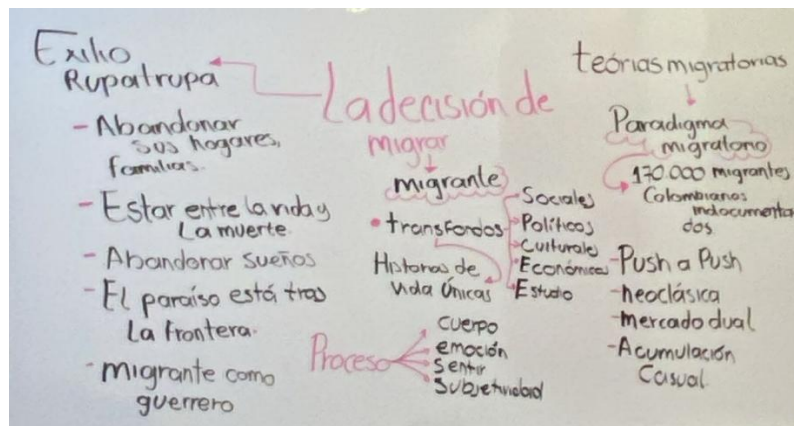 Exilio
Rupatrupa
- Abandonar
sus hogares,
familias.
- Estar entre la vida y
La muerte.
- Abandonar sueños
- El paraíso está tras
La frontera.
- migrante como
guerrero
La decisión de
migrar
migrante
• transfondos
- Sociales
- Políticos
- Culturales
- Económicos
- Estudio
Historias de
vida Únicas
Proceso
cuerpo
emoción
sentir
subjetividad
teórias migratorias
Paradigma
migratorio
170.000 migrantes
Colombianos
indocumenta
dos
- Push a Push
- neoclásica
- mercado dual
- Acumulación
Casual